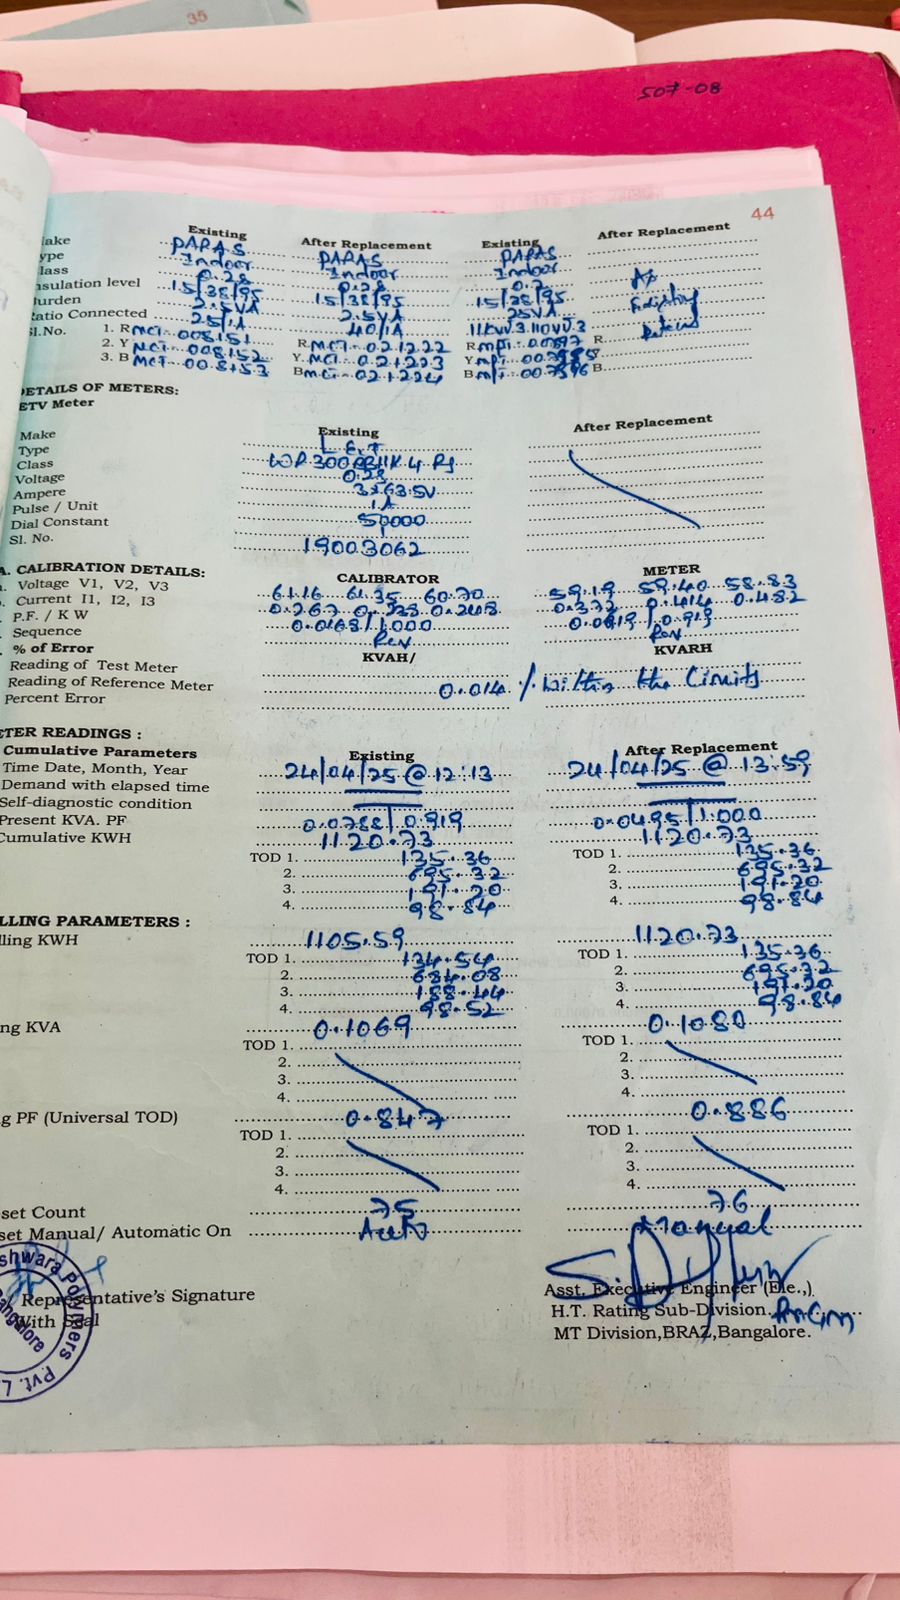 35
507-08
44
Existing After Replacement Existing After Replacement
ake PARAS PARAS PARAS
ype Indoor Indoor Indoor
lass 0.2S 0.2S 0.2
nsulation level 15/38/95 15/38/95 15/38/95
Burden 2.5VA 2.5VA 25VA
atio Connected 25/1A 40/1A
Sl.No. 1. R MCT 008151 R MCT 021222 R R
2. Y MCT 008152 Y MCT 021223 Y Y
3. B MCT 008153 B MCT 021224 B B
DETAILS OF METERS:
ETV Meter
Existing After Replacement
Make L&T
Type
Class 0.2S
Voltage 3x63.5V
Ampere 1A
Pulse / Unit 50000
Dial Constant
Sl. No. 19003062
A. CALIBRATION DETAILS: CALIBRATOR METER
Voltage V1, V2, V3 61.16 61.35 60.70 59.19 59.40 58.83
Current I1, I2, I3 0.267 0.238 0.372 0.414 0.482
P.F. / K W 1.000 0.919
Sequence Rev Rev
% of Error KVAH/ KVARH
Reading of Test Meter
Reading of Reference Meter 0.014 / Within the Limits
Percent Error
TER READINGS :
Cumulative Parameters Existing After Replacement
Time Date, Month, Year 24/04/25 @ 12:13 24/04/25 @ 13:59
Demand with elapsed time
Self-diagnostic condition
Present KVA. PF 0.0788/0.919 0.0495/1.000
Cumulative KWH 1120.73 1120.73
TOD 1. 135.36 TOD 1. 135.36
2. 695.32 2. 695.32
3. 191.20 3. 191.20
4. 98.84 4. 98.84
LLING PARAMETERS :
lling KWH 1105.59 1120.73
TOD 1. 134.54 TOD 1. 135.36
2. 684.08 2. 695.32
3. 188.44 3. 191.20
4. 98.52 4. 98.84
ng KVA 0.1069 0.1080
TOD 1. TOD 1.
2. 2.
3. 3.
4. 4.
g PF (Universal TOD) 0.847 0.886
TOD 1. TOD 1.
2. 2.
3. 3.
4. 4.
set Count 75 76
set Manual/ Automatic On Auto Manual
Representative's Signature
With Seal
shwara Polymers Pvt. L
angalore
Asst. Executive Engineer (Ele.,)
H.T. Rating Sub-Division
MT Division,BRAZ,Bangalore.